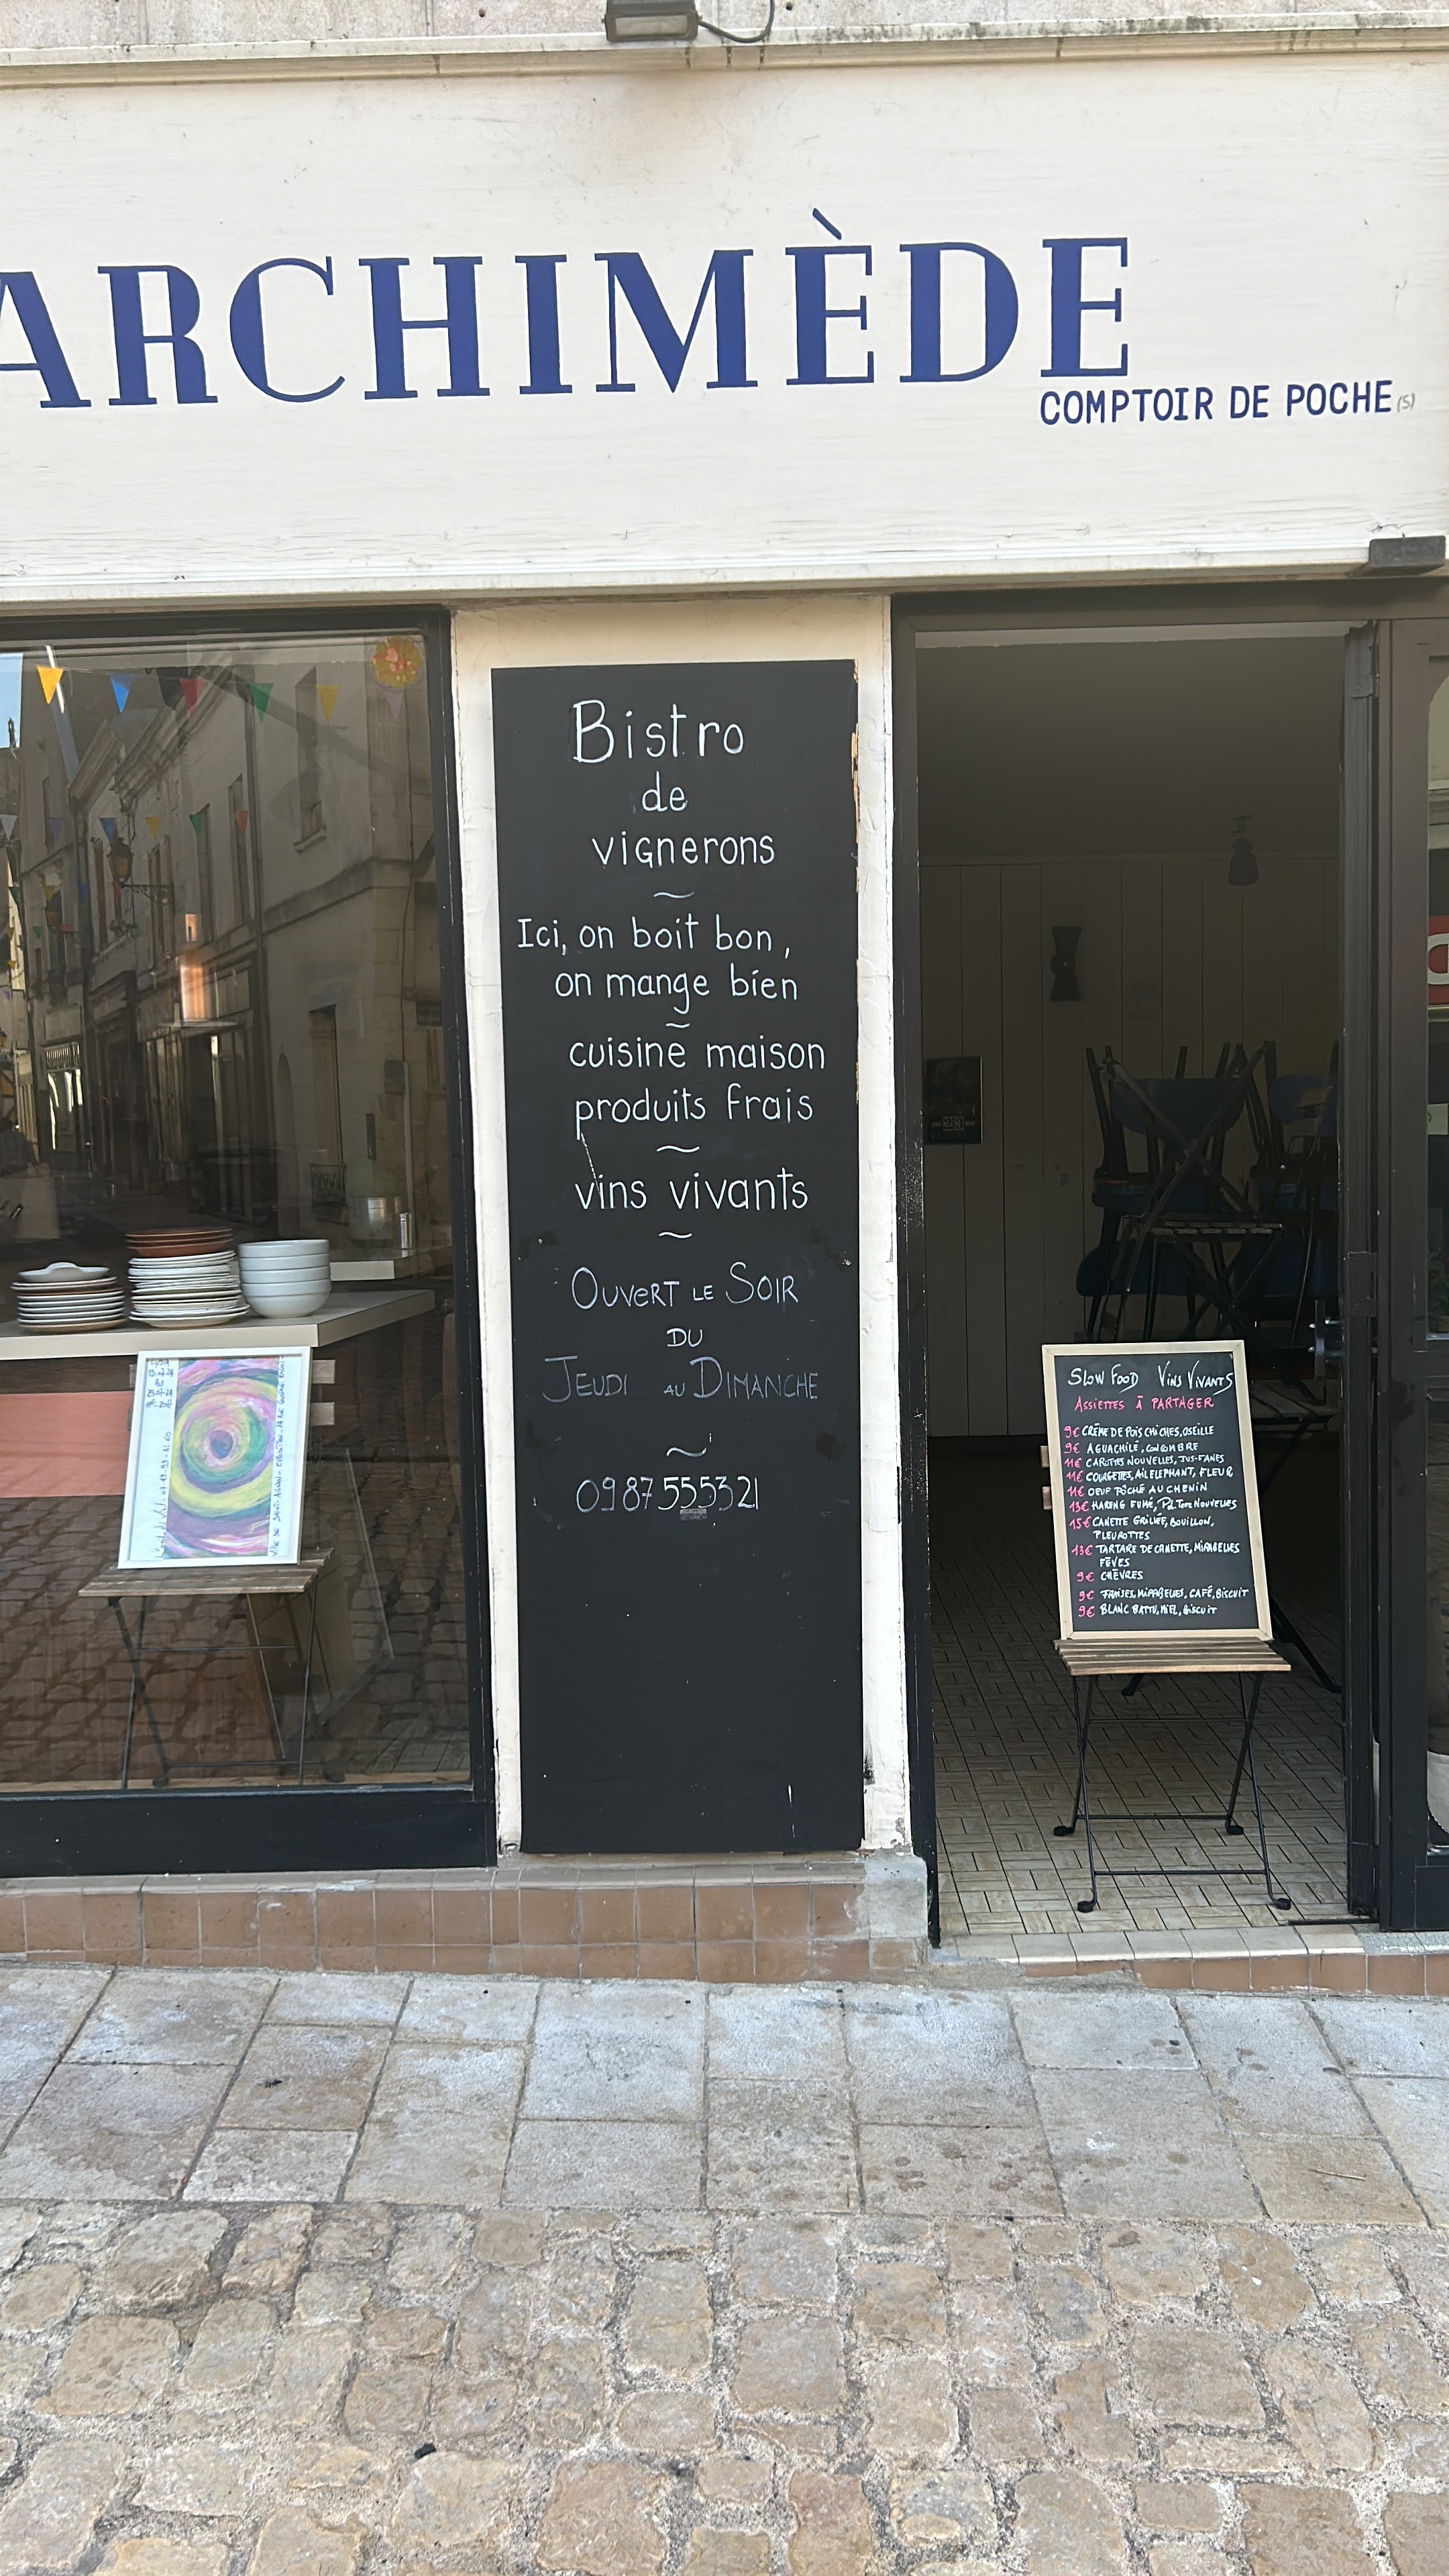 ARCHIMÈDE
COMPTOIR DE POCHE(S)
Bistro
de
vignerons
~
Ici, on boit bon,
on mange bien
~
cuisine maison
produits frais
~
vins vivants
~
OUVERT LE SOIR
DU
JEUDI AU DIMANCHE
~
0987555321
23
SLOW FOOD VINS VIVANTS
ASSIETTES À PARTAGER
9€ CRÈME DE POIS CHICHES, OSEILLE
9€ AGUACHILE, CONCOMBRE
11€ CAROTTES NOUVELLES, JUS-FANES
11€ COURGETTES, AIL ELEPHANT, FLEUR
11€ OEUF POCHÉ AU CHENIN
13€ HARENG FUMÉ, NOUVELLES
15€ CANETTE GRILLÉE, BOUILLON,
PLEUROTTES
13€ TARTARE DE CANETTE, MIRABELLES
FÈVES
9€ CHÈVRES
9€ MIRABELLES, CAFÉ, BISCUIT
9€ BLANC BATTU, MIEL, BISCUIT